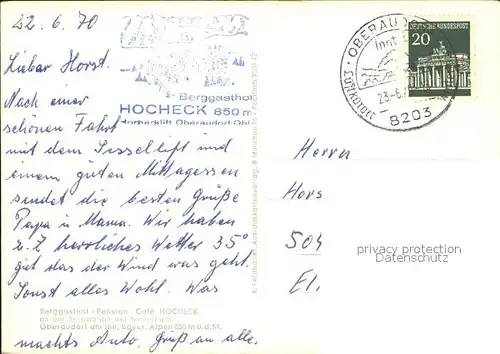 22.6.70
Lieber Horst.
Nach einer
schönen Fahrt
mit dem Sessellift und
einem guten Mittagessen
sendet die besten Grüße
Papa u Mama. Wir haben
z.Z herrliches Wetter 35°
gut das der Wind was geht.
Sonst alles Wohl. Was
machts Auto. Gruß an alle.
Berggasthof
HOCHECK 850 m
Hochecklift Oberaudorf-Obb
Berggasthof - Pension - Café HOCHECK
an der Bergstation der
Oberaudorf am Inn, Bayer. Alpen 850 m ü.d.M.
OBERAUD
Luftkurort
23.-6.
8203
DEUTSCHE BUNDESPOST
20
Herrn
Hors
504
privacy protection
Datenschutz